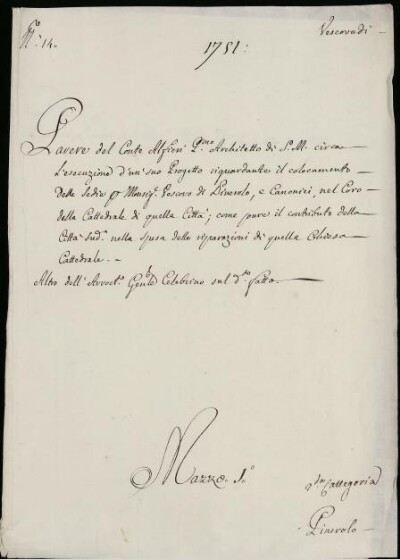 N.° 14.
Vescovadi
1751:
Parere del Conte Alfieri P.mo Architetto di S. M. circa
l'esecuzione d'un suo Progetto riguardante il colocamento
delle Sedie p Monsig.r Vescovo di Pinerolo, e Canonici, nel Coro
della Cattedrale di quella Città; come pure il contributo della
Città sud.a nella spesa delle riparazioni di quella Chiesa
Cattedrale. -
Altro dell' Avvoc.to Gen.le Celebrino sul d.to fatto
Mazzo 1.°
Categoria
Pinerolo